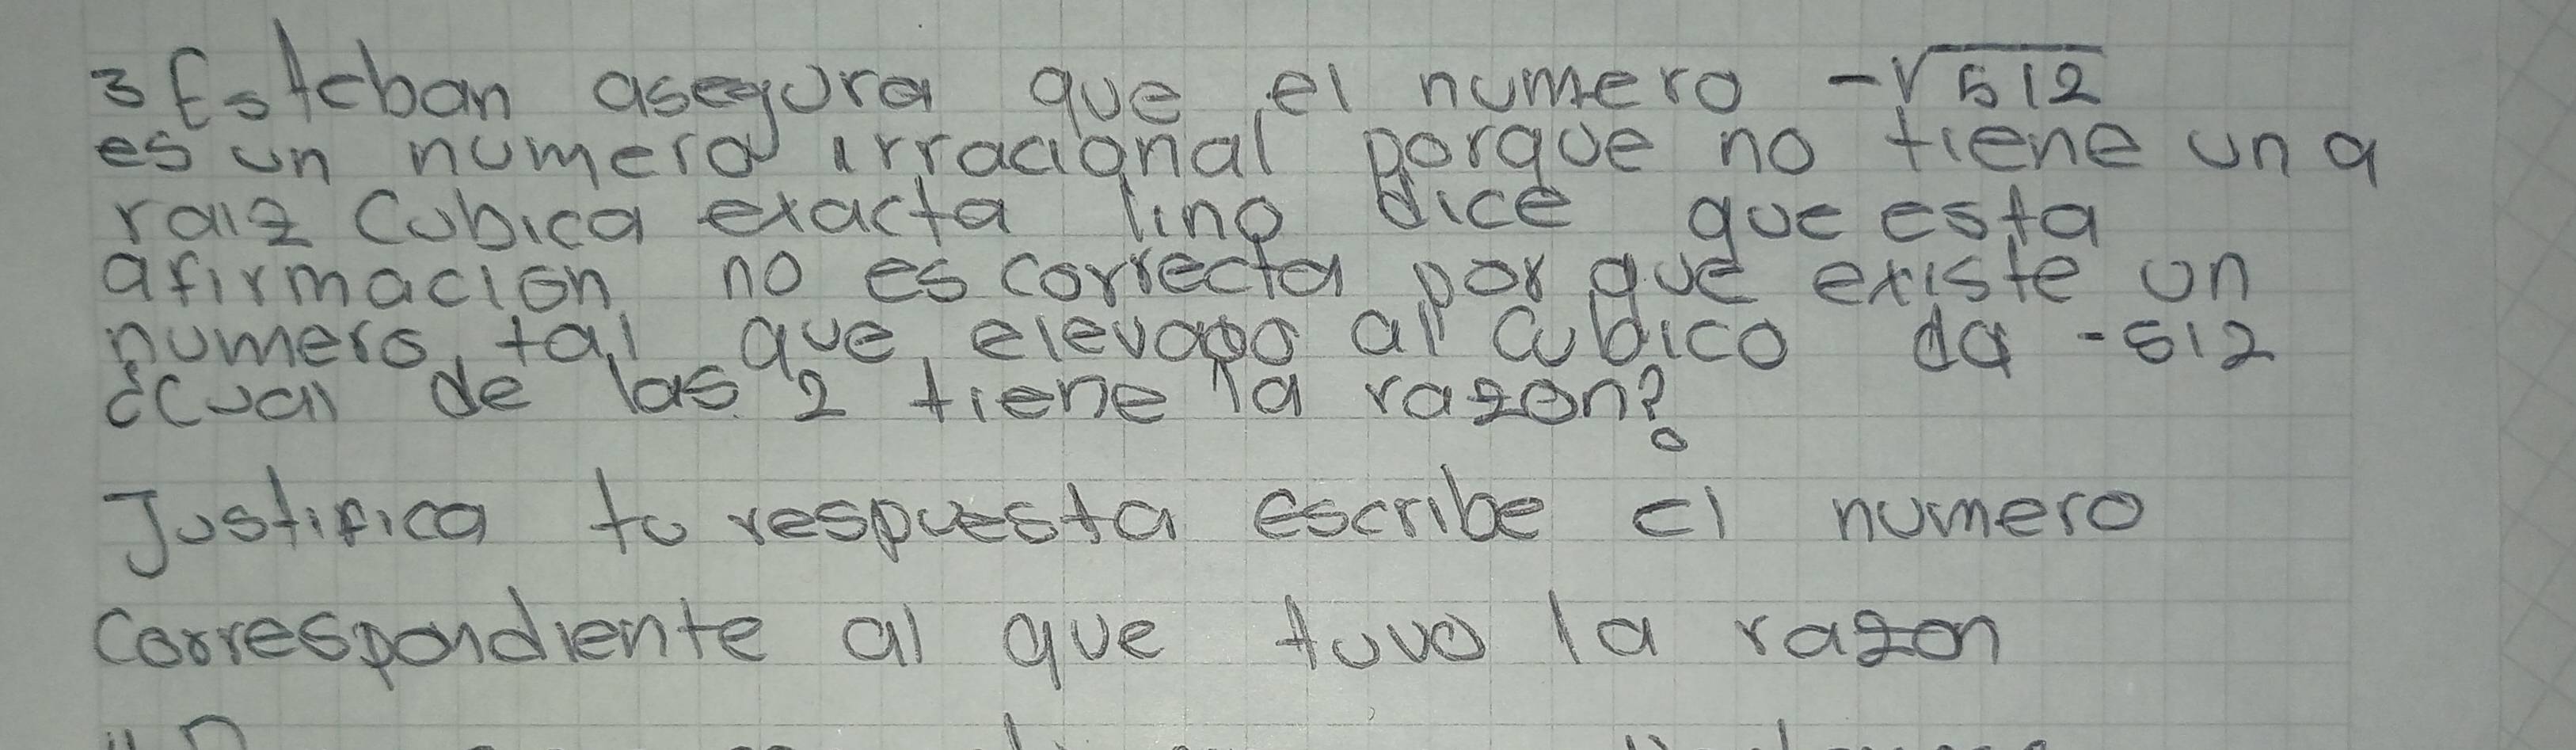 3 Esteban asegura que el numero -√512
es un numero irracional porque no tiene un a
raiz Cubica exacta lino dice que esta
afirmacion no es correcta por que existe un
numero, tal que, elevado al cubico da -512
¿Cual de las 2 tiene la razon?
Justifica tu respuesta escribe el numero
Correspondiente al que tuvo la razon